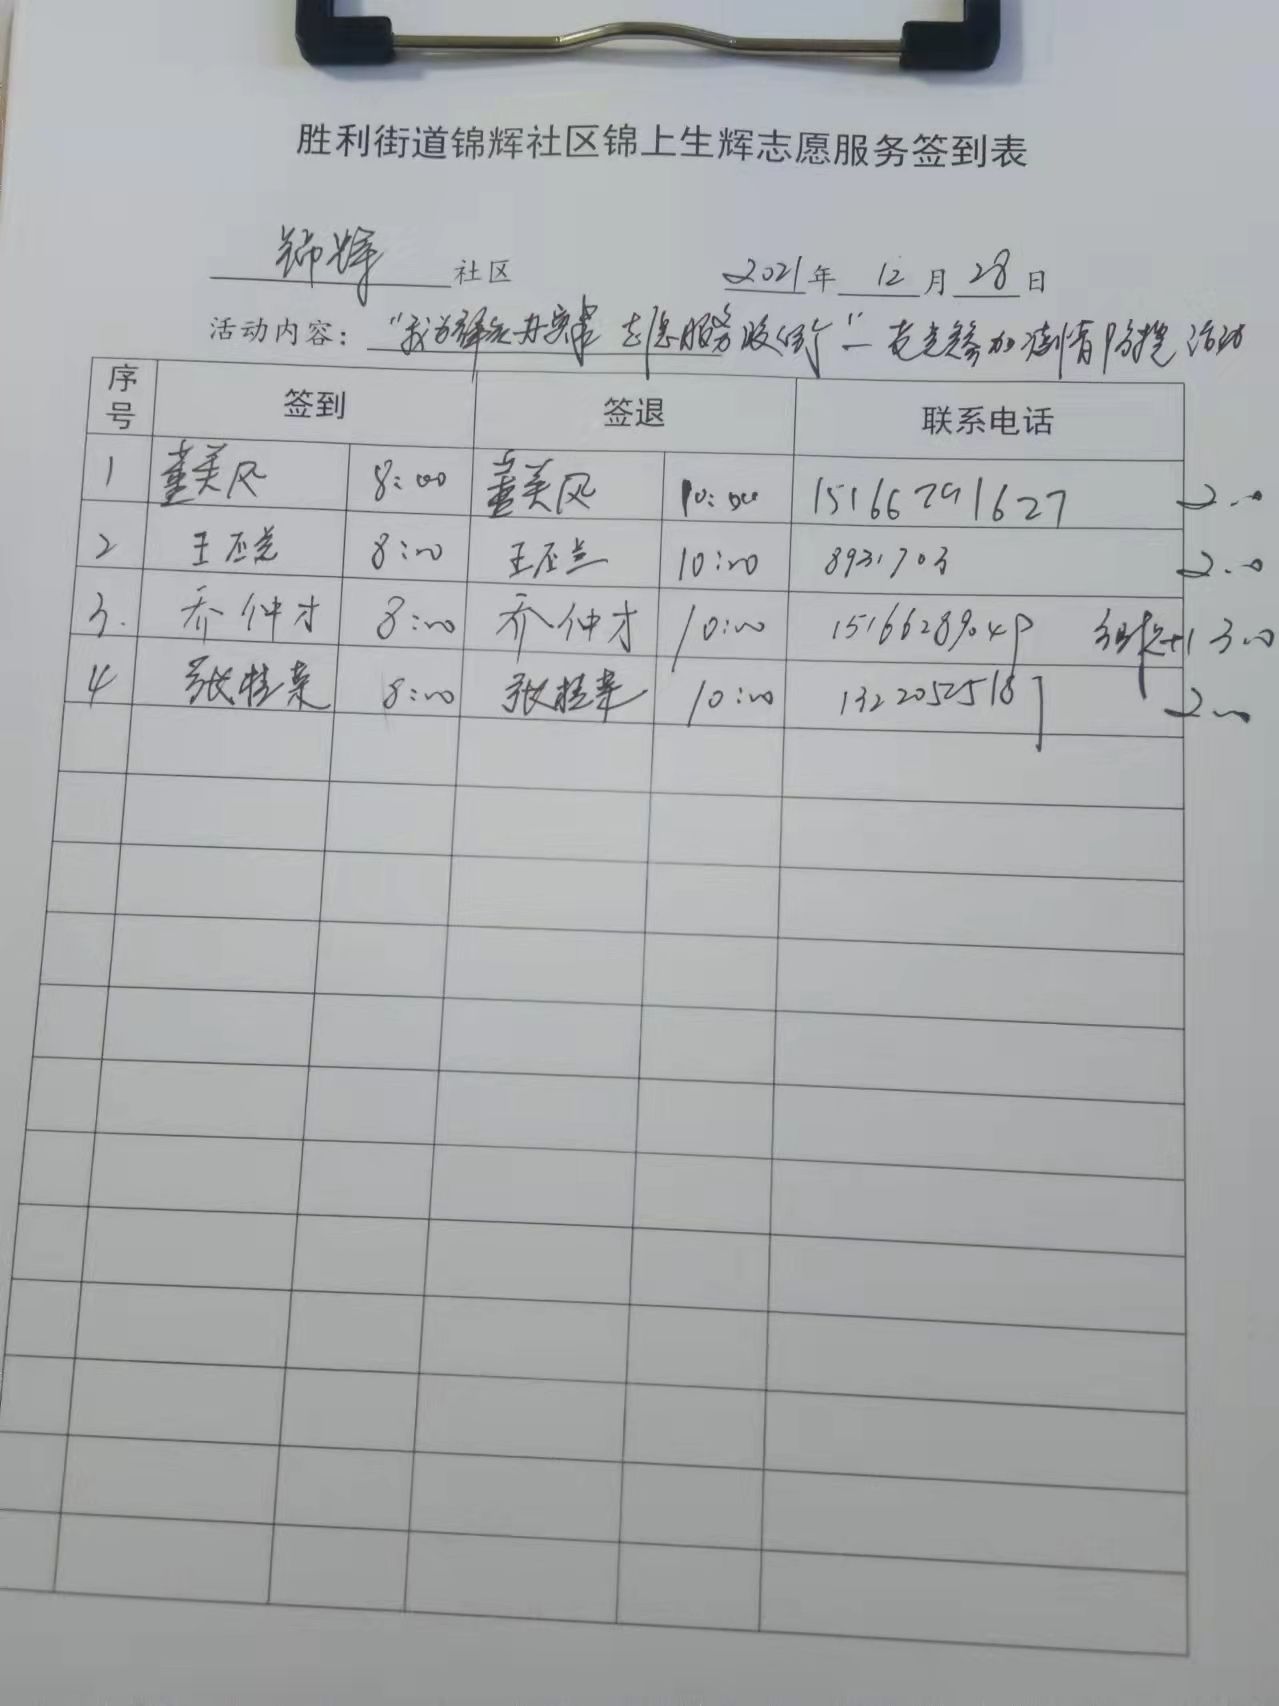 胜利街道锦辉社区锦上生辉志愿服务签到表
锦辉 社区 2021年 12月 28日
活动内容："我为群众办实事 志愿服务我先行"一老党员参加疫情防控活动
序号 签到 签退 联系电话
1 董美风 8:00 董美风 10:00 15166791627 2.0
2 王丕兰 8:00 王丕兰 10:00 8931703 2.0
3. 乔仲才 8:00 乔仲才 10:00 15166289049 组织+1 3.0
4 张桂荣 8:00 张桂荣 10:00 1322052518 2.0